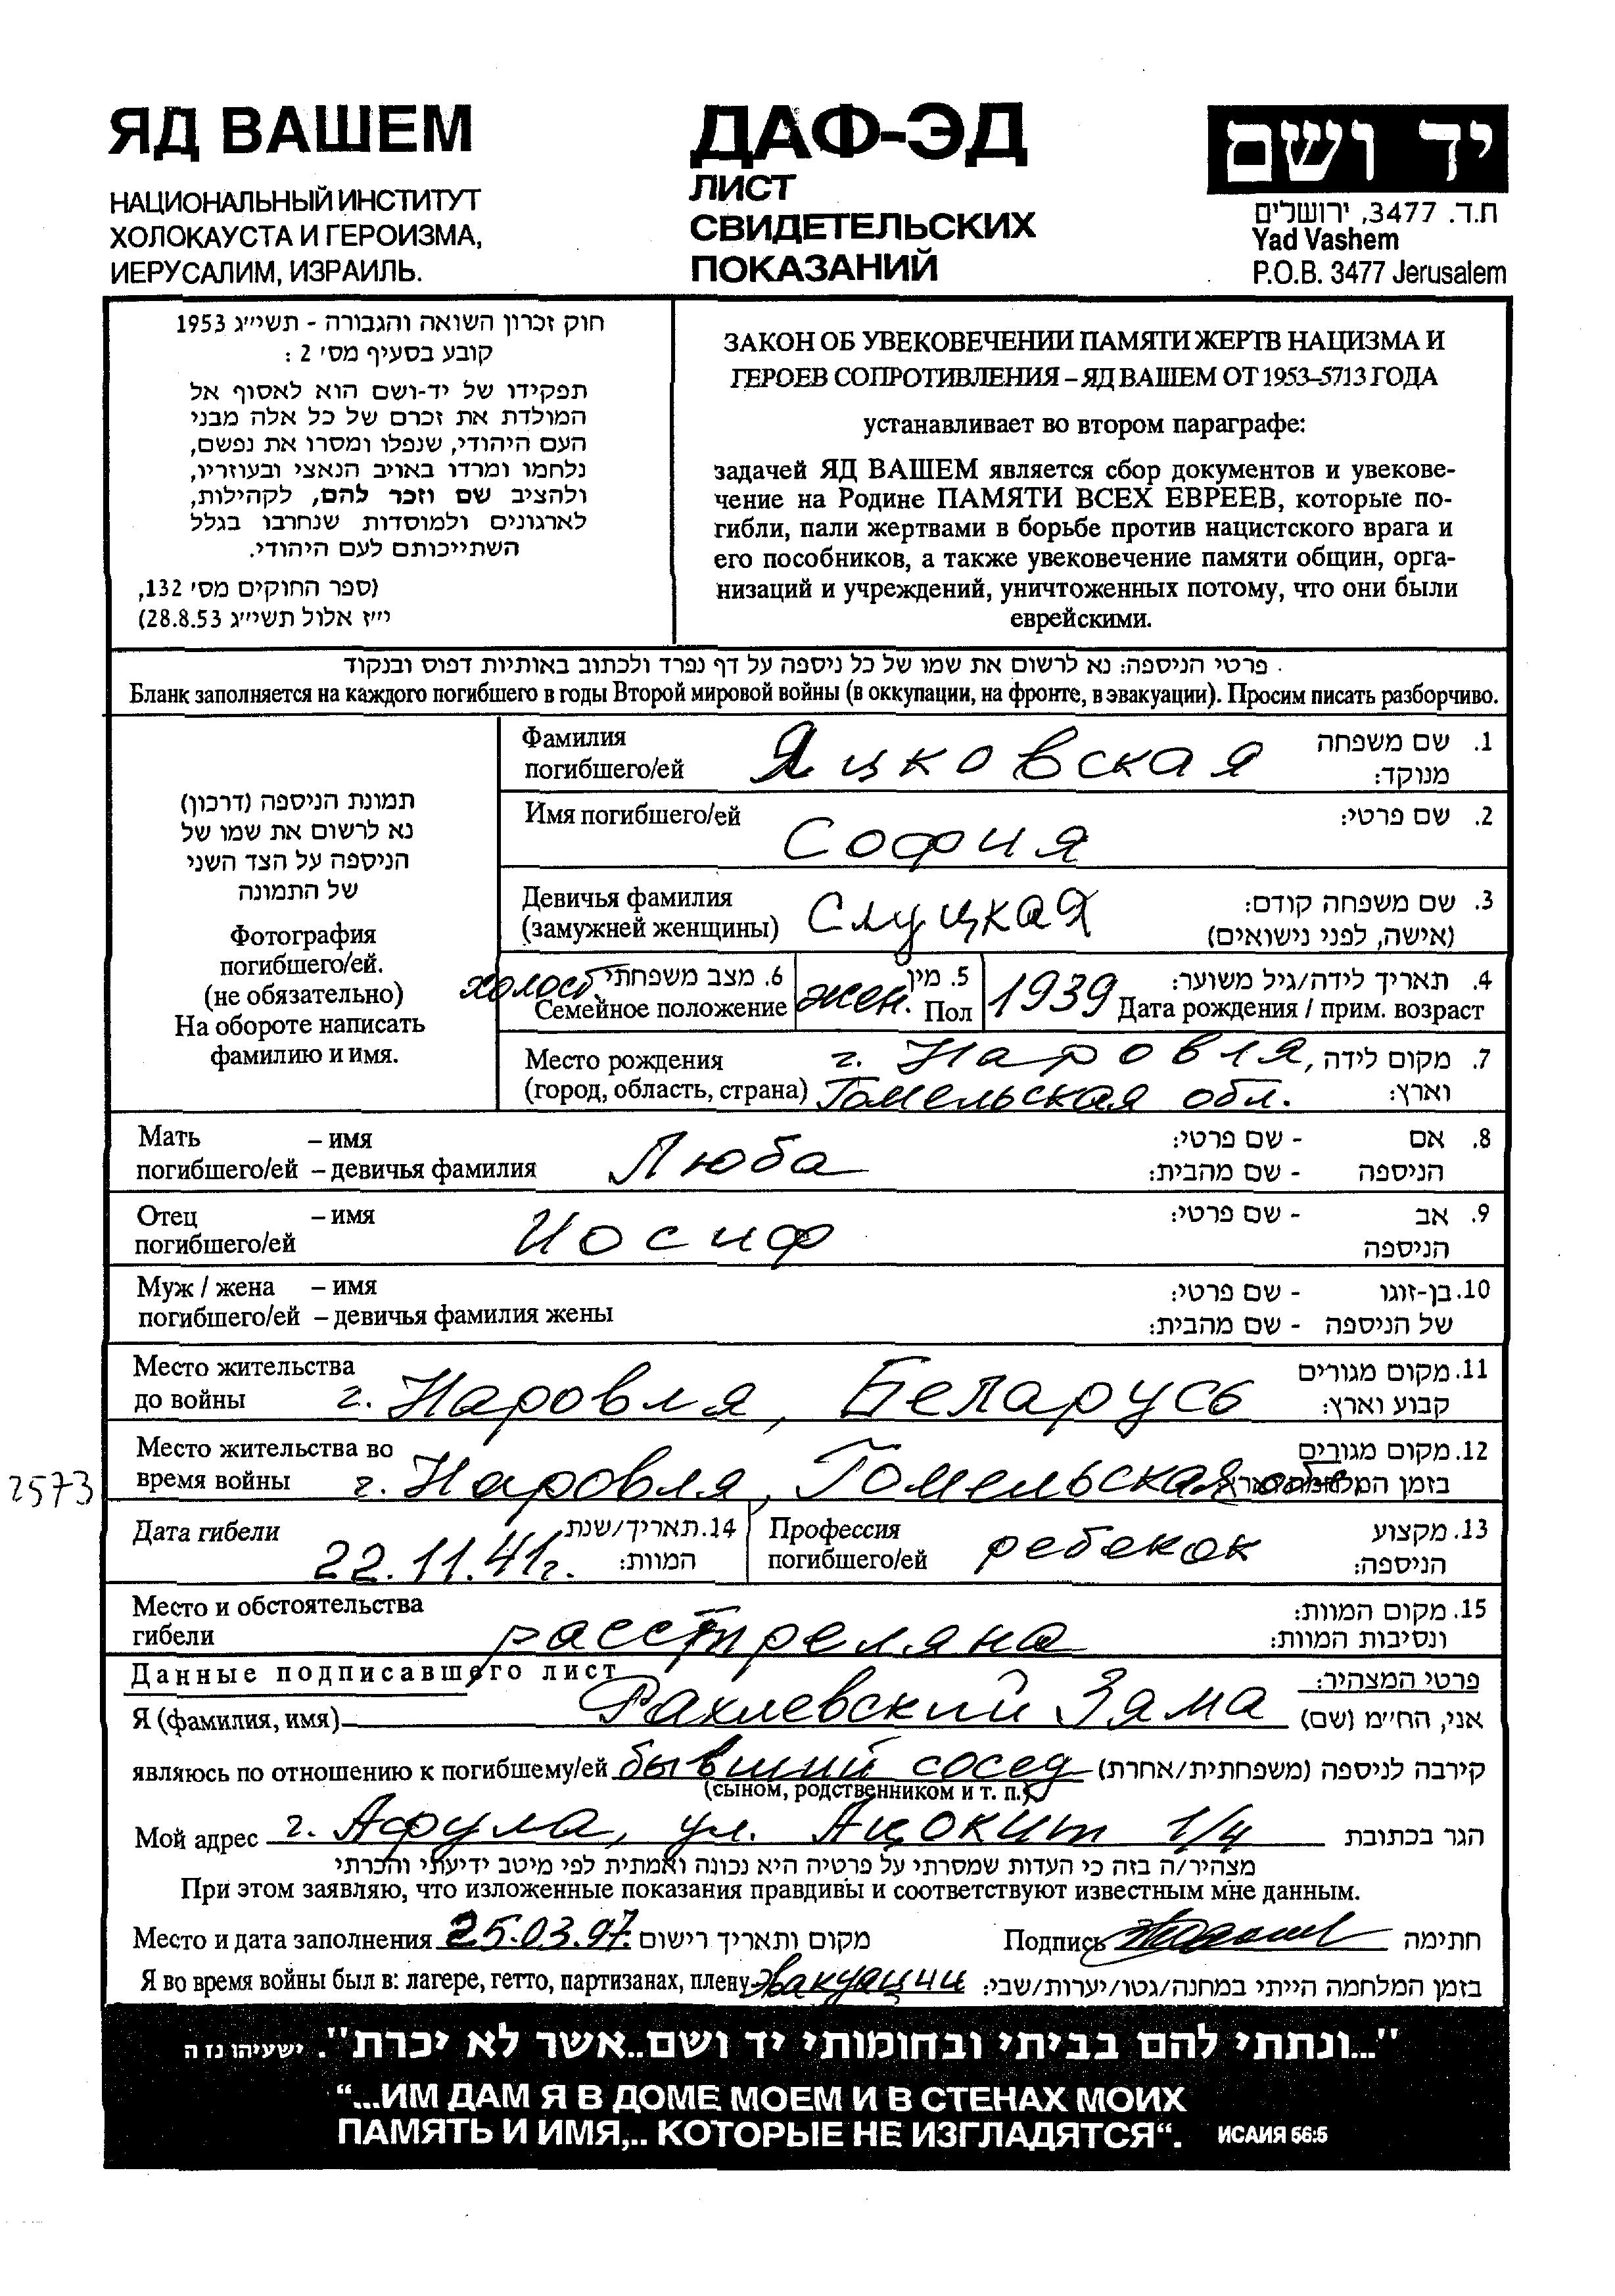 ЯД ВАШЕМ
НАЦИОНАЛЬНЫЙ ИНСТИТУТ
ХОЛОКАУСТА И ГЕРОИЗМА,
ИЕРУСАЛИМ, ИЗРАИЛЬ.
ДАФ-ЭД
ЛИСТ
СВИДЕТЕЛЬСКИХ
ПОКАЗАНИЙ
יד ושם
ת.ד. 3477, ירושלים
Yad Vashem
P.O.B. 3477 Jerusalem
חוק זכרון השואה והגבורה - תשי״ג 1953
קובע בסעיף מס׳ 2 :
תפקידו של יד-ושם הוא לאסוף אל
המולדת את זכרם של כל אלה מבני
העם היהודי, שנפלו ומסרו את נפשם,
נלחמו ומרדו באויב הנאצי ובעוזריו,
ולהציב שם וזכר להם, לקהילות,
לארגונים ולמוסדות שנחרבו בגלל
השתייכותם לעם היהודי.
(ספר החוקים מס׳ 132,
י״ז אלול תשי״ג 28.8.53)
ЗАКОН ОБ УВЕКОВЕЧЕНИИ ПАМЯТИ ЖЕРТВ НАЦИЗМА И
ГЕРОЕВ СОПРОТИВЛЕНИЯ – ЯД ВАШЕМ ОТ 1953–5713 ГОДА
устанавливает во втором параграфе:
задачей ЯД ВАШЕМ является сбор документов и увекове-
чение на Родине ПАМЯТИ ВСЕХ ЕВРЕЕВ, которые по-
гибли, пали жертвами в борьбе против нацистского врага и
его пособников, а также увековечение памяти общин, орга-
низаций и учреждений, уничтоженных потому, что они были
еврейскими.
פרטי הניספה: נא לרשום את שמו של כל ניספה על דף נפרד ולכתוב באותיות דפוס ובנקוד
Бланк заполняется на каждого погибшего в годы Второй мировой войны (в оккупации, на фронте, в эвакуации). Просим писать разборчиво.
תמונת הניספה (דרכון)
נא לרשום את שמו של
הניספה על הצד השני
של התמונה
Фотография
погибшего/ей.
(не обязательно)
На обороте написать
фамилию и имя.
Фамилия Яцковская 1. שם משפחה
погибшего/ей מנוקד:
Имя погибшего/ей София 2. שם פרטי:
Девичья фамилия Слуцкая 3. שם משפחה קודם:
(замужней женщины) (אישה, לפני נישואים)
холост 6. מצב משפחתי жен. 5. מין 1939 4. תאריך לידה/גיל משוער:
Семейное положение Пол Дата рождения / прим. возраст
Место рождения г. Наровля, 7. מקום לידה
(город, область, страна) Гомельская обл. וארץ:
Мать – имя Люба 8. אם - שם פרטי:
погибшего/ей – девичья фамилия הניספה - שם מהבית:
Отец – имя Иосиф 9. אב - שם פרטי:
погибшего/ей הניספה
Муж / жена – имя 10. בן-זוגו - שם פרטי:
погибшего/ей – девичья фамилия жены של הניספה - שם מהבית:
Место жительства 11. מקום מגורים
до войны г. Наровля, Беларусь קבוע וארץ:
Место жительства во 12. מקום מגורים
2573 время войны г. Наровля, Гомельская обл. בזמן המלחמה וארץ:
Дата гибели 22.11.41г. 14. תאריך/שנת Профессия ребекок 13. מקצוע
המוות: погибшего/ей הניספה:
Место и обстоятельства 15. מקום המוות:
гибели расстреляна ונסיבות המוות:
Данные подписавшего лист פרטי המצהיר:
Я (фамилия, имя) Рахлевский Зяма אני, הח״מ (שם)
являюсь по отношению к погибшему/ей бывший сосед קירבה לניספה (משפחתית/אחרת)
(сыном, родственником и т. п.)
Мой адрес г. Афула, ул. Ацокит 1/4 הגר בכתובת
מצהיר/ה בזה כי העדות שמסרתי על פרטיה היא נכונה ואמתית לפי מיטב ידיעתי והכרתי
При этом заявляю, что изложенные показания правдивы и соответствуют известным мне данным.
Место и дата заполнения 25.03.97. מקום ותאריך רישום Подпись חתימה
Я во время войны был в: лагере, гетто, партизанах, плену эвакуации בזמן המלחמה הייתי במחנה/גטו/יערות/שבי:
"...ונתתי להם בביתי ובחומותי יד ושם..אשר לא יכרת". ישעיהו נז ה
“...ИМ ДАМ Я В ДОМЕ МОЕМ И В СТЕНАХ МОИХ
ПАМЯТЬ И ИМЯ,.. КОТОРЫЕ НЕ ИЗГЛАДЯТСЯ“. ИСАИЯ 56:5